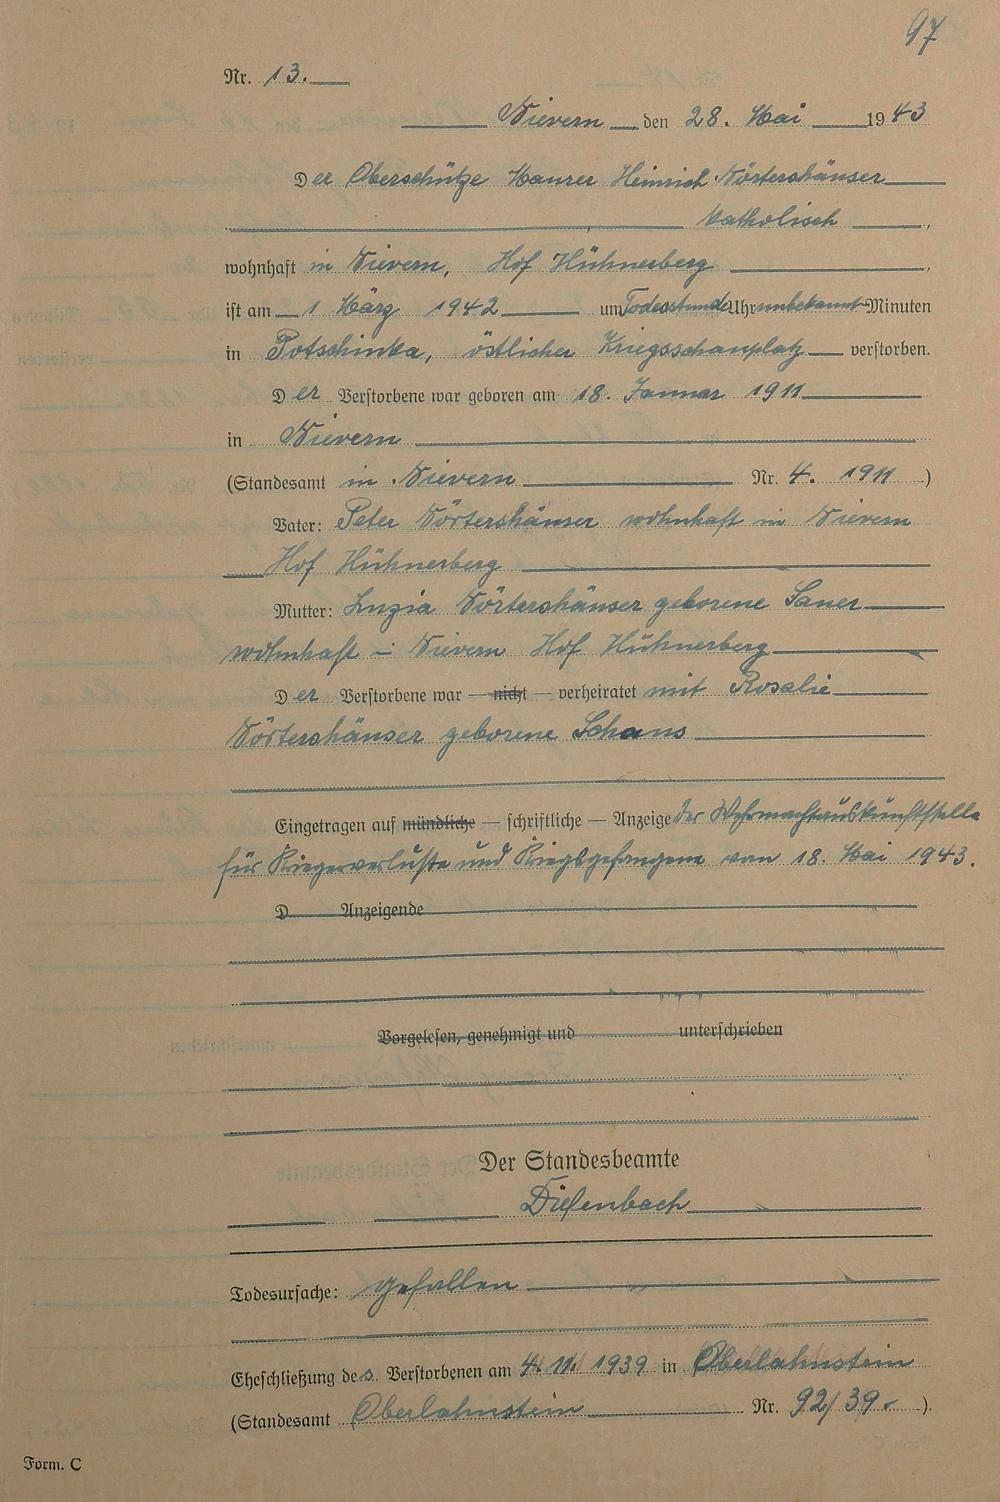 97
Nr. 13.
Nievern, den 28. Mai 1943
Der Oberschütze Maurer Heinrich Nörtershäuser
katholisch,
wohnhaft in Nievern, Hof Hühnerberg,
ist am 1 März 1942 um Todesstunde Uhr unbekannt Minuten
in Potschinka, östlicher Kriegsschauplatz verstorben.
Der Verstorbene war geboren am 18. Januar 1911
in Nievern
(Standesamt in Nievern Nr. 4. 1911)
Vater: Peter Nörtershäuser wohnhaft in Nievern
Hof Hühnerberg
Mutter: Luzia Nörtershäuser geborene Sauer
wohnhaft i Nievern Hof Hühnerberg
Der Verstorbene war — nicht — verheiratet mit Rosalie
Nörtershäuser geborene Schaus
Eingetragen auf mündliche — schriftliche — Anzeige der Wehrmachtauskunftstelle
für Kriegerverluste und Kriegsgefangene vom 18. Mai 1943.
D Anzeigende
Vorgelesen, genehmigt und unterschrieben
Der Standesbeamte
Diefenbach
Todesursache: gefallen
Eheschließung des Verstorbenen am 4. 11. 1939 in Oberlahnstein
(Standesamt Oberlahnstein Nr. 92/39.)
Form. C